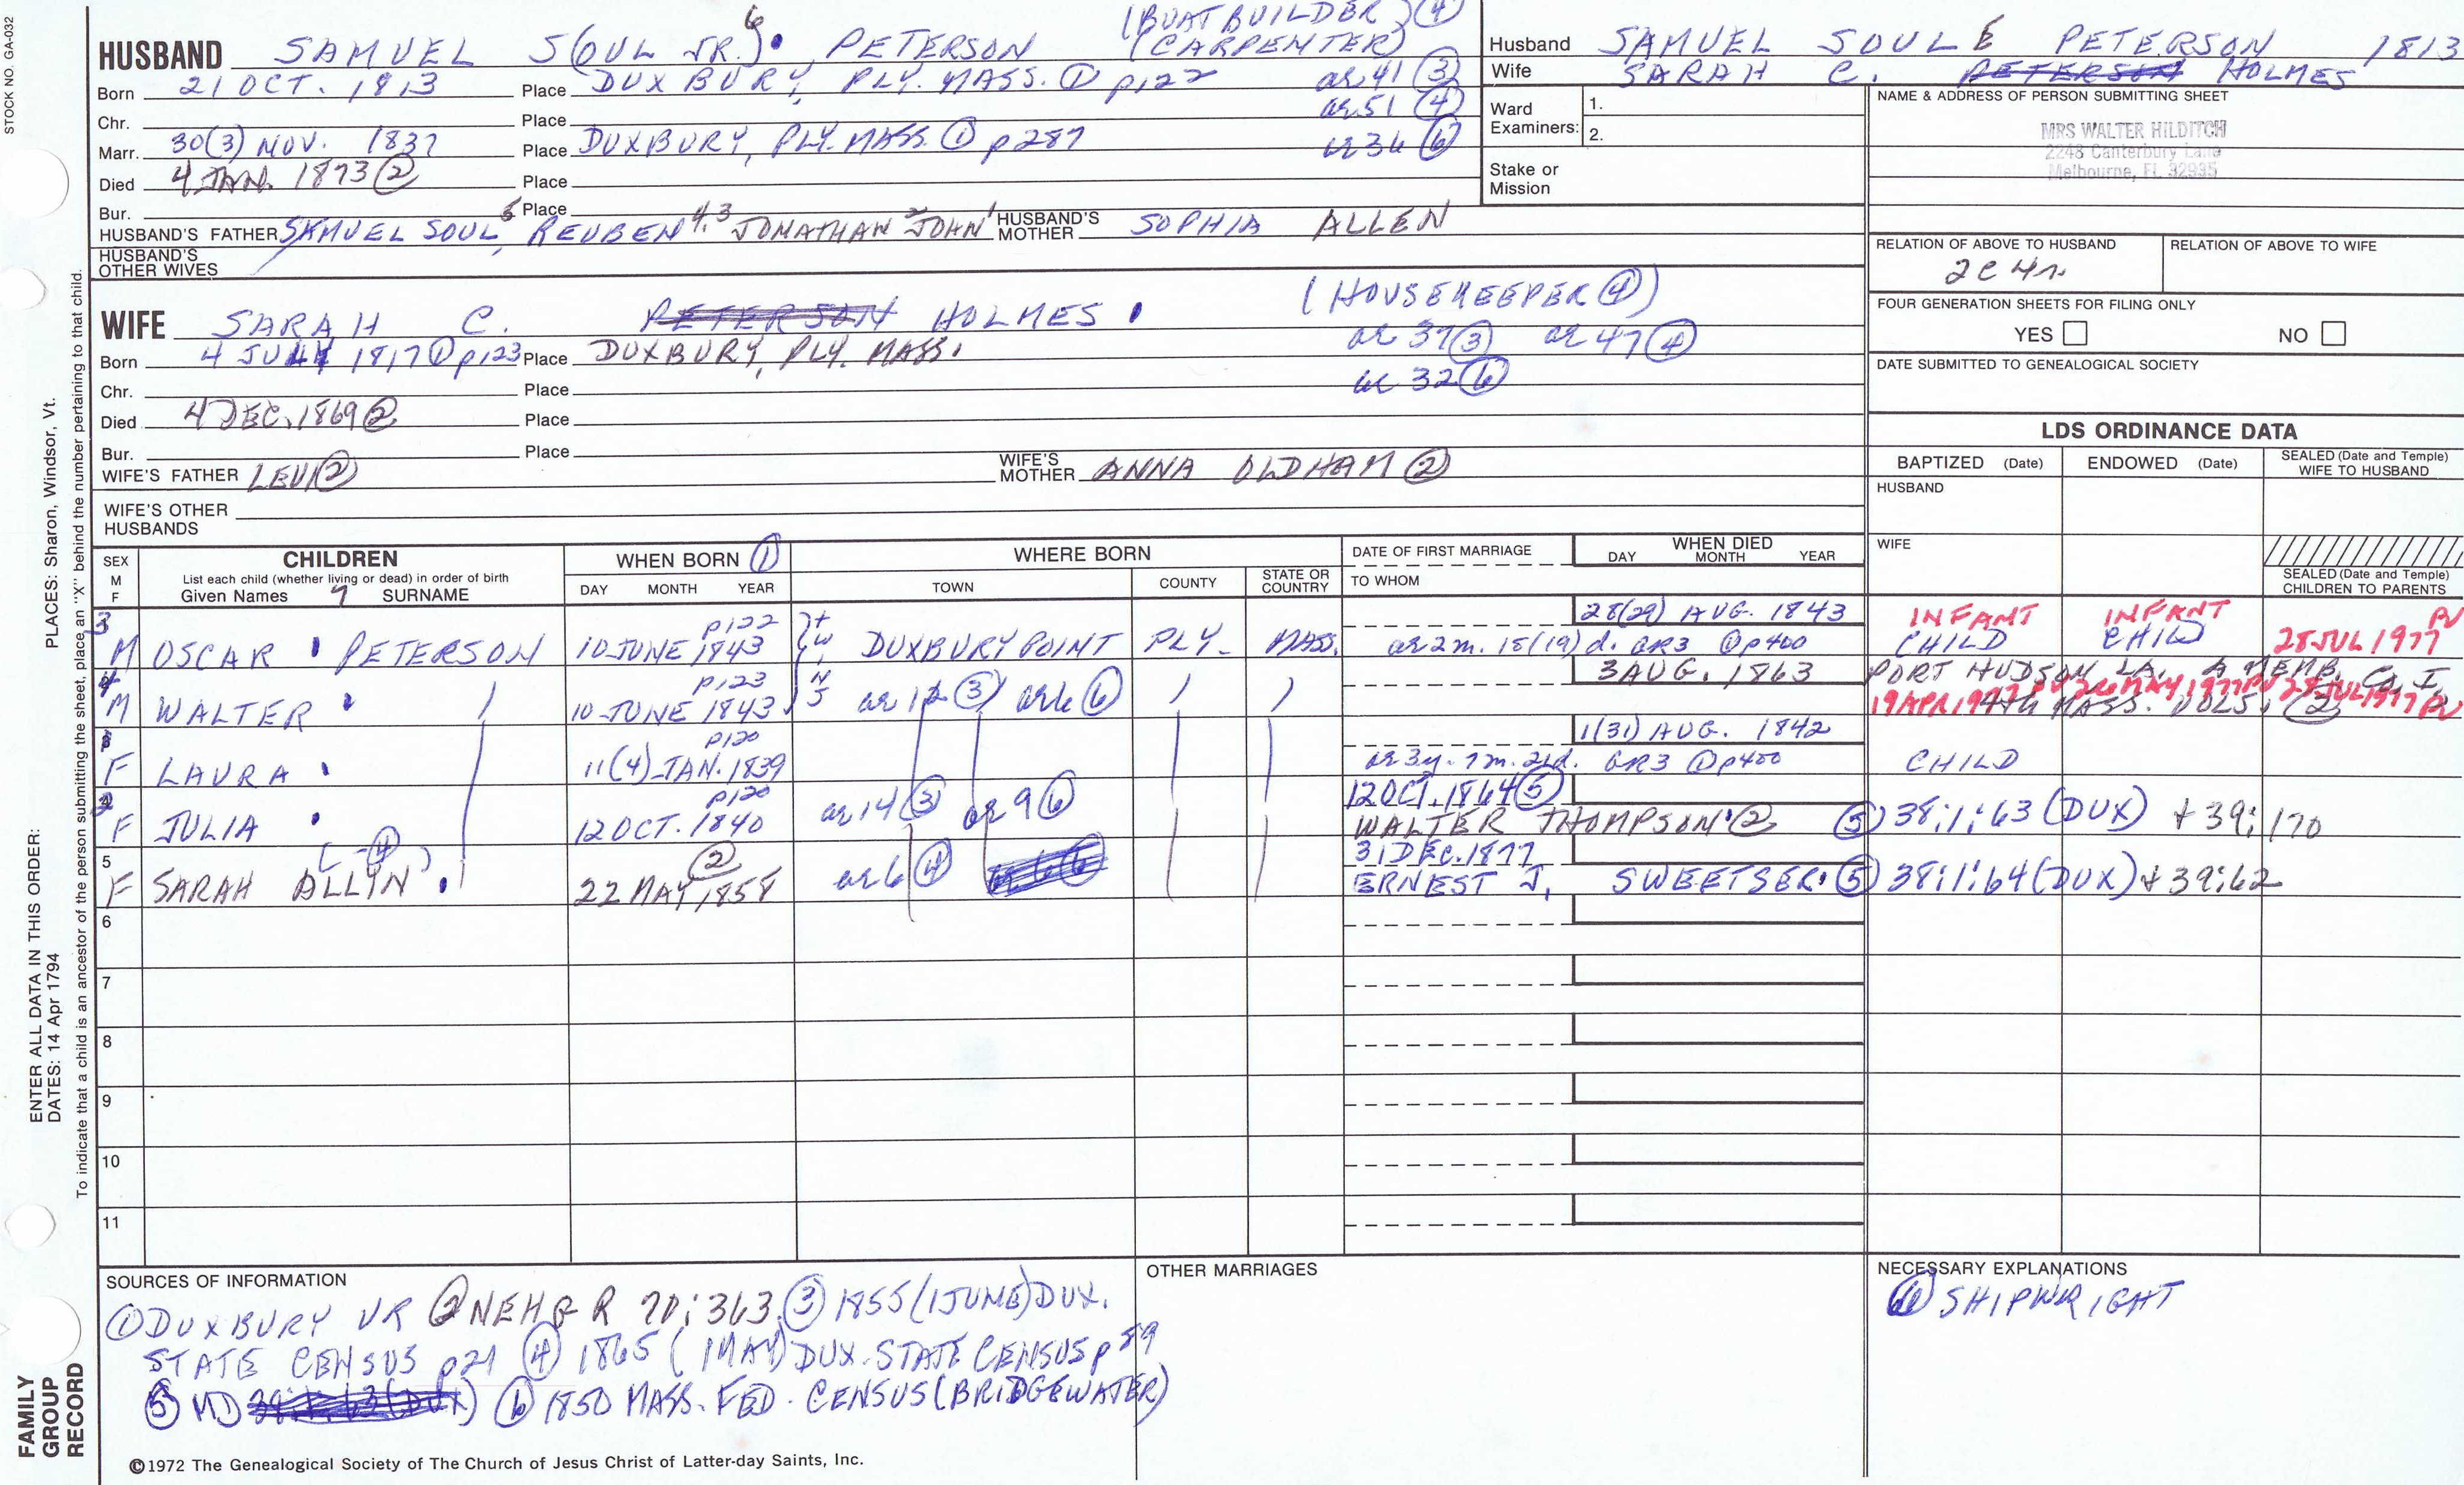 STOCK NO. GA-032
(BOATBUILDER) ④
HUSBAND SAMUEL S(OUL JR.) 6 PETERSON (CARPENTER)
Born 21 OCT. 1813 Place DUXBURY, PLY. MASS. ① p122 ae 41 ③
Chr. Place ae 51 ④
Marr. 30(3) NOV. 1837 Place DUXBURY, PLY. MASS. ① p287 ae 36 ⑥
Died 4 JAN. 1873 ② Place
Bur. Place
HUSBAND'S FATHER SAMUEL SOUL 5, REUBEN 4, 3 JONATHAN 2 JOHN 1 HUSBAND'S MOTHER SOPHIA ALLEN
HUSBAND'S OTHER WIVES
WIFE SARAH C. PETERSON HOLMES (HOUSEKEEPER ④)
Born 4 JULY 1817 ① p123 Place DUXBURY, PLY. MASS. ae 37 ③ ae 47 ④
Chr. Place ae 32 ⑥
Died 4 DEC. 1869 ② Place
Bur. Place
WIFE'S FATHER LEVI ② WIFE'S MOTHER ANNA OLDHAM ②
WIFE'S OTHER HUSBANDS
Husband SAMUEL SOULE PETERSON 1813
Wife SARAH C. PETERSON HOLMES
Ward Examiners: 1.
2.
Stake or Mission
NAME & ADDRESS OF PERSON SUBMITTING SHEET
MRS WALTER HILDITCH
2248 Canterbury Lane
Melbourne, FL 32935
RELATION OF ABOVE TO HUSBAND RELATION OF ABOVE TO WIFE
2C 4r.
FOUR GENERATION SHEETS FOR FILING ONLY
YES NO
DATE SUBMITTED TO GENEALOGICAL SOCIETY
LDS ORDINANCE DATA
BAPTIZED (Date) ENDOWED (Date) SEALED (Date and Temple) WIFE TO HUSBAND
HUSBAND
WIFE
SEALED (Date and Temple) CHILDREN TO PARENTS
SEX M F
CHILDREN
List each child (whether living or dead) in order of birth
Given Names SURNAME
WHEN BORN ①
DAY MONTH YEAR
WHERE BORN
TOWN COUNTY STATE OR COUNTRY
DATE OF FIRST MARRIAGE
TO WHOM
WHEN DIED
DAY MONTH YEAR
3 p122 28(29) AUG. 1843 INFANT INFANT PV
M OSCAR PETERSON 10 JUNE 1843 DUXBURY POINT PLY. MASS. ae 2m. 18(19)d. GR3 ① p400 CHILD CHILD 28 JUL 1977
4 p123 3 AUG. 1863 PORT HUDSON LA. A MEMB. Co. I,
M WALTER 10 JUNE 1843 ae 12 ③ ae 6 ⑥ 19 APR 1977 PV 26 MAY 1977 PV 28 JUL 1977 PV
4th MASS. VOLS. ②
p120 1(31) AUG. 1842
F LAURA 11(4) JAN. 1839 ae 3y. 7m. 21d. GR3 ① p400 CHILD
p120 12 OCT. 1864 ⑤
F JULIA 12 OCT. 1840 ae 14 ③ ae 9 ⑥ WALTER THOMPSON ② ⑤ 38:1:63 (DUX) + 39:170
5 (-④) ② 31 DEC. 1877
F SARAH ALLYN 22 MAY 1858 ae 6 ④ ERNEST J. SWEETSER ⑤ 38:1:64 (DUX) + 39:62
6
7
8
9
10
11
SOURCES OF INFORMATION
① DUXBURY VR ② NEHGR 70:363 ③ 1855 (1 JUNE) DUX.
STATE CENSUS p21 ④ 1865 (1 MAY) DUX. STATE CENSUS p 59
⑤ MD ⑥ 1850 MASS. FED. CENSUS (BRIDGEWATER)
OTHER MARRIAGES
NECESSARY EXPLANATIONS
⑥ SHIPWRIGHT
©1972 The Genealogical Society of The Church of Jesus Christ of Latter-day Saints, Inc.
FAMILY GROUP RECORD
ENTER ALL DATA IN THIS ORDER:
DATES: 14 Apr 1794
PLACES: Sharon, Windsor, Vt.
To indicate that a child is an ancestor of the person submitting the sheet, place an "X" behind the number pertaining to that child.